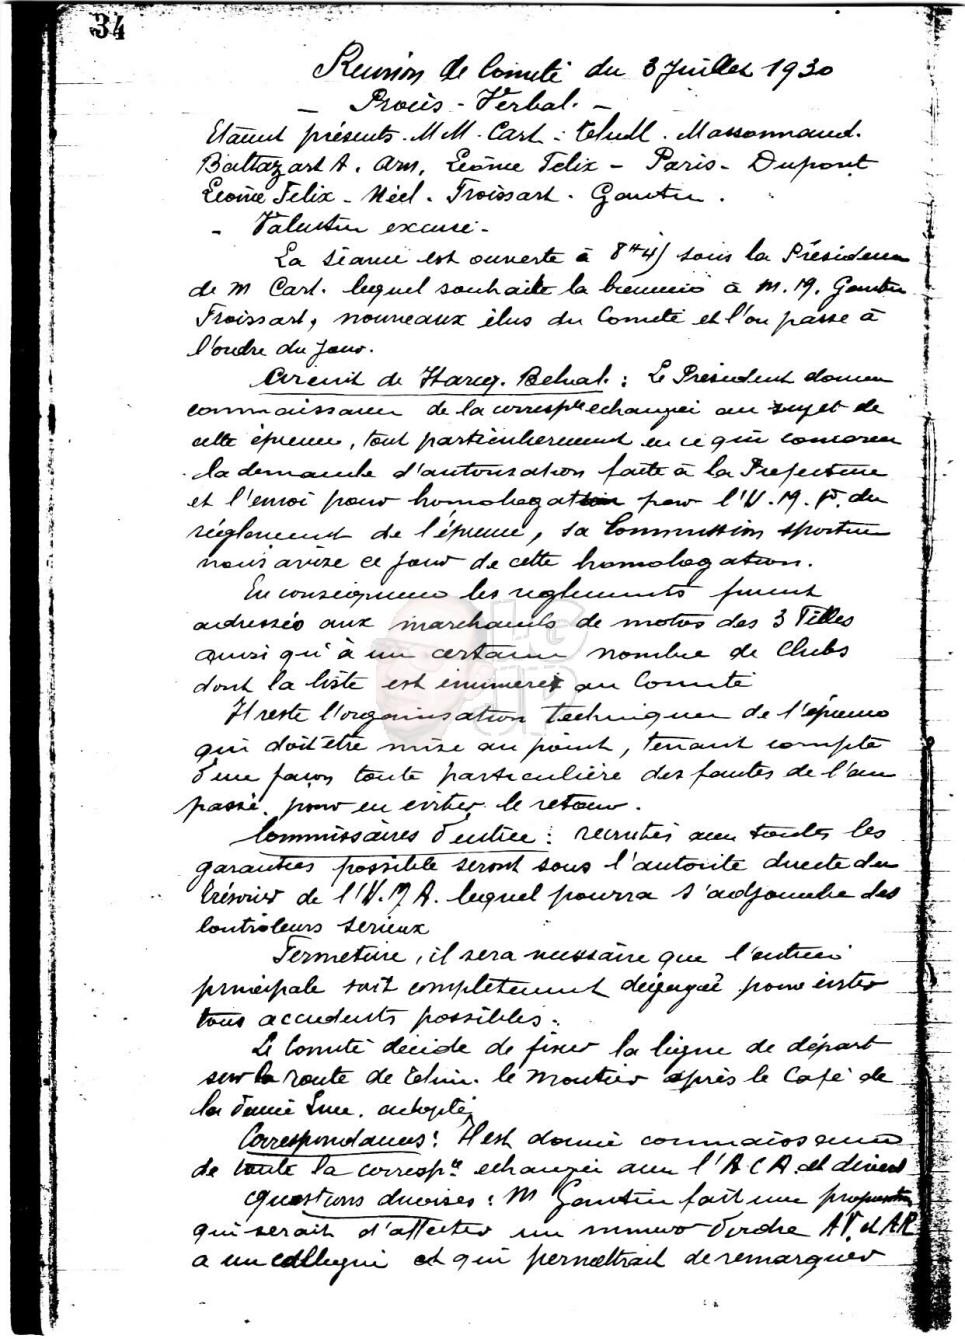 34
Réunion de Comité du 3 Juillet 1930
— Procès-Verbal. —
Etaient présents. M M. Cart - Massonnaud.
Baltazart A. Léonie Felix - Paris - Dupont
Léonie Felix - Héel. Froissart. Gautier.
- Valentin excusé -
La séance est ouverte à 8H45 sous la Présidence
de M Cart. lequel souhaite la bienvenue à M. M. Gautier
Froissart, nouveaux élus du Comité et l'on passe à
l'ordre du Jour.
Circuit de : Le Président donne
connaissance de la correspce echangée au sujet de
cette épreuve, tout particulierement en ce qui concerne
la demande d'autorisation faite à la Prefecture
et l'envoi pour homologation par l'U. M. F. du
réglement de l'épreuve, sa Commission sportive
nous avise ce jour de cette homologation.
En consequence les reglements furent
adressés aux marchands de motos des 3 Villes
ainsi qu'à un certain nombre de Clubs
dont la liste est énumeré au Comité
Il reste l'organisation technique de l'épreuve
qui doit être mise au point, tenant compte
d'une façon toute particulière des fautes de l'an
passé. pour en eviter le retour.
Commissaires d'entrée : recrutés avec toutes les
garanties possible seront sous l'autorité directe du
trésorier de l'U. M A. lequel pourra s'adjoindre des
Contrôleurs serieux
Fermeture, il sera nécessaire que l'entrée
principale soit completement dégagée pour éviter
tous accidents possibles.
Le Comité décide de fixer la ligne de départ
sur la route de le Moutier après le Café de
la adopté
Correspondances : Il est donné connaissance
de toute la correspce echangée avec l'A C A. et divers
questions diverses : M Gautier fait une proposition
qui serait d'affecter un numero d'ordre AV. et AR
a un collegue et qui permettrait de remarquer